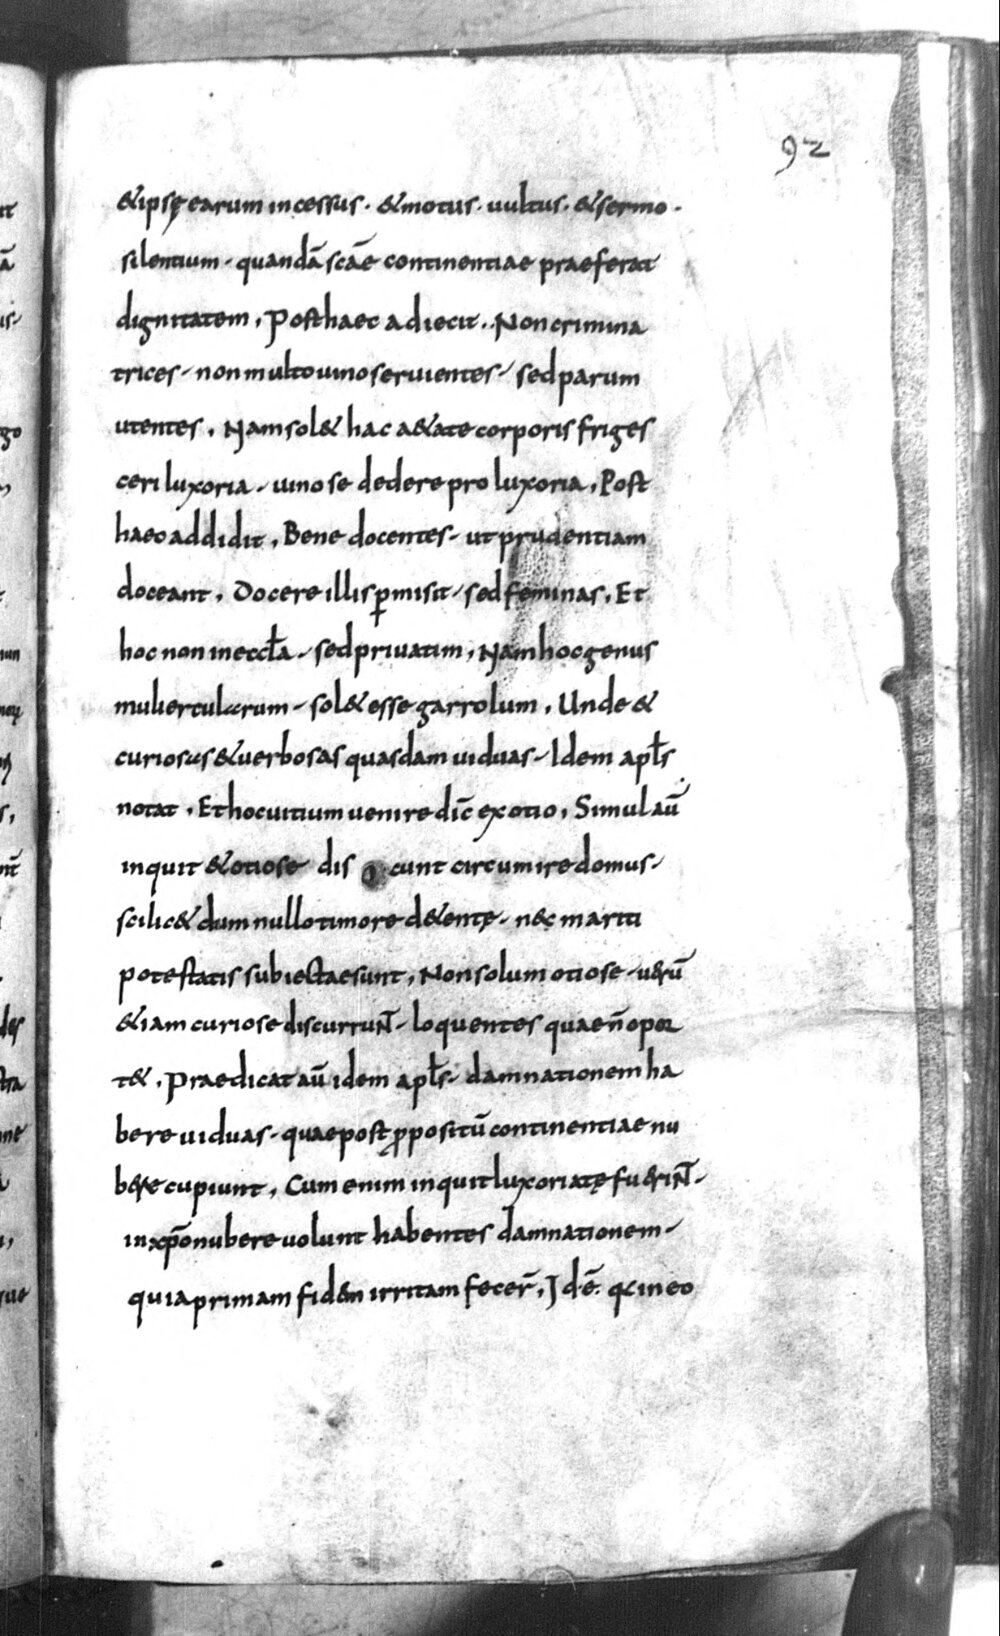 92
&ipsę earum incessus · &motus · uultus · &sermo ·
silentium · quandā scāe continentiae praeferat
dignitatem, Posthaec adiecit ·. Non crimina
trices · non multo uino seruientes · sed parum
utentes, Nam sol& hac a&ate corporis friges
ceri luxoria · uino se dedere pro luxoria, Post
haec addidit, Bene docentes · ut prudentiam
doceant, Docere illis ꝑmisit · sed feminas, Et
hoc non in eccła · sed priuatim, Nam hoc genus
muliercularum · sol& esse garrolum, Unde &
curiosas &uerbosas quasdam uiduas · Idem apłs
notat, Et hoc uitium uenire dic̄ ex otio, Simul aū
inquit &otiose discunt circumire domus ·
scilic& dum nullo timore d&entę · nec mariti
potestatis subiectae sunt, Non solum otiose · uerū
&iam curiose discurrunt̄ · loquentes quae n̄ opor
t&, Praedicat aū idem apłs · damnationem ha
bere uiduas · quae post ꝓpositū continentiae nu
bere cupiunt, Cum enim inquit luxoriatę fuerint̄ ·
in xp̄o nubere uolunt habentes damnationem ·
quia primam fidem irritam fecer̄, Id · ē · q in eo